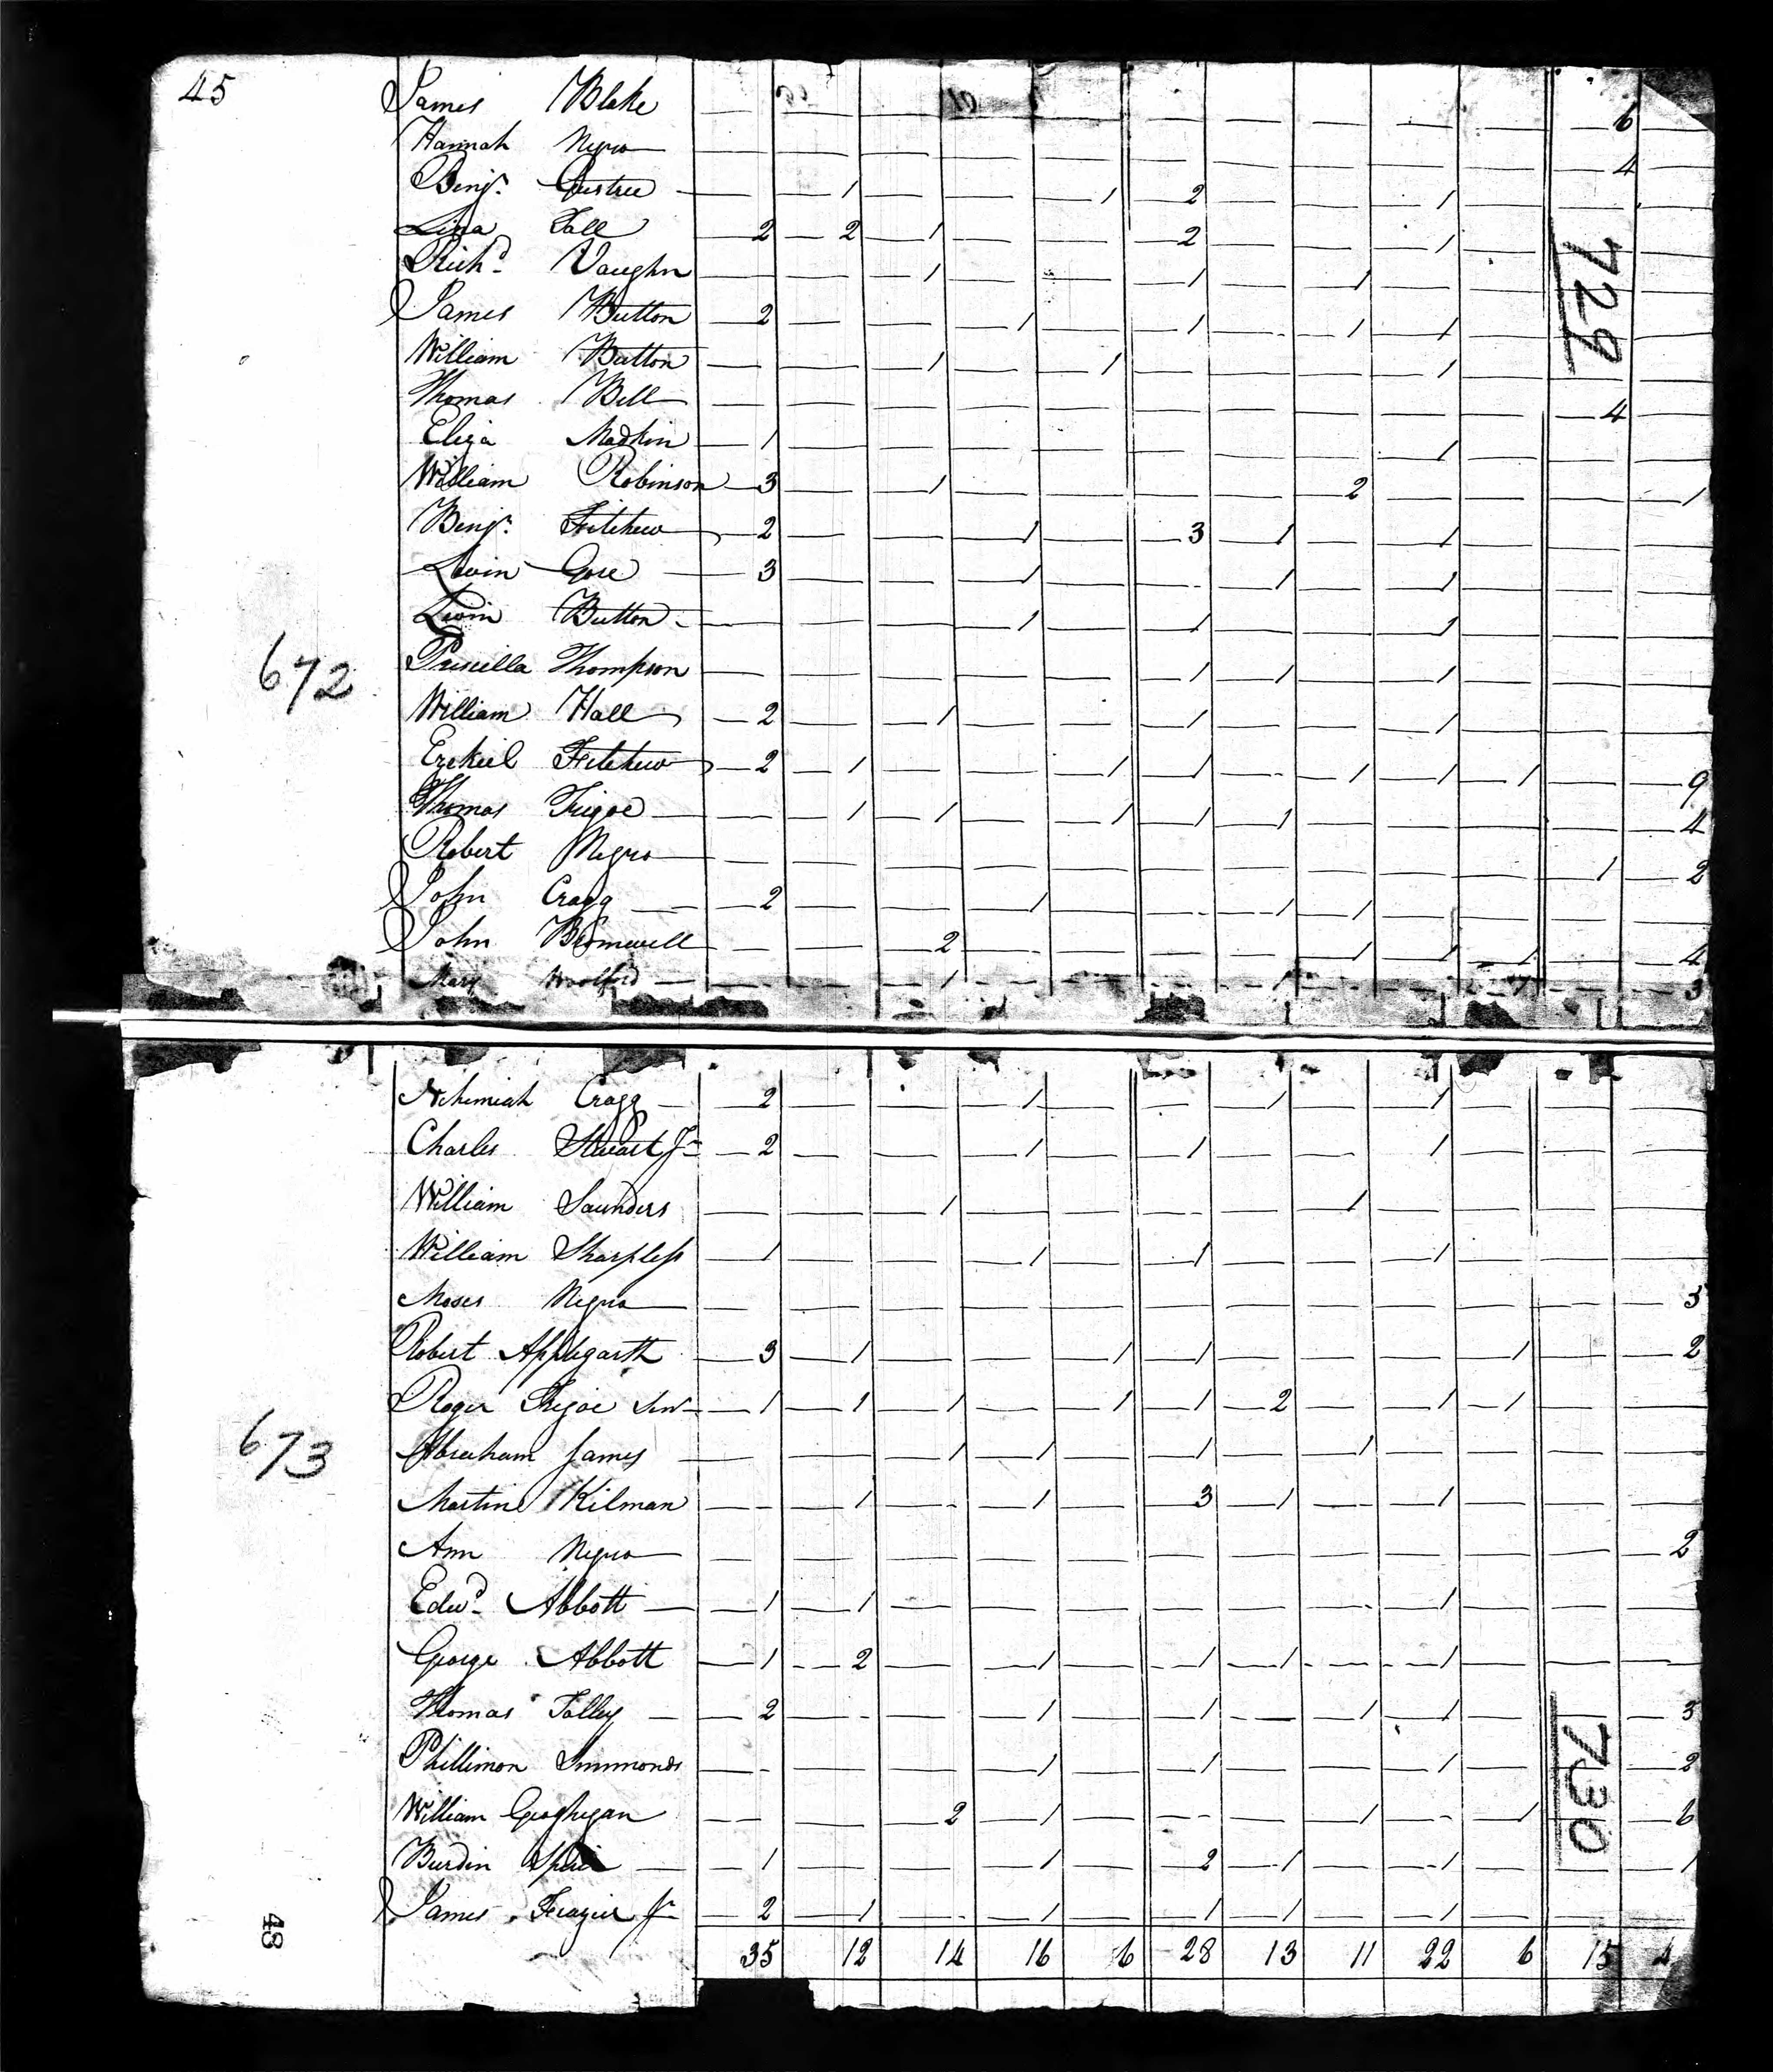 45
James Blake — — — — — — — — — — 6 —
Hannah Negro — — — — — — — — — — 4 —
Benjn. — — 1 — — 1 2 — — 1 — — —
Tall 2 2 1 — — 2 — — 1 — — —
Richd. Vaughn — — 1 — — 1 — 1 — — — —
James Button 2 — — 1 — 1 — 1 1 — — —
William Button — — 1 — 1 — — — 1 — — —
Thomas Bell — — — — — — — — — — 4 —
Eliza Madkin 1 — — — — — — — 1 — — —
William Robinson 3 — 1 — — — — 2 — — — 1
Benjn. Fitchew 2 — — 1 — 3 1 — 1 — — —
Levin Gore 3 — — 1 — — 1 — 1 — — —
Levin Button — — — 1 — 1 — — 1 — — —
672
Priscilla Thompson — — — — — 1 1 — 1 — — —
William Hall 2 — 1 — — 1 — — 1 — — —
Ezekiel Fitchew 2 1 — — 1 1 — 1 1 1 — 9
Thomas Tregoe — 1 1 — 1 1 1 — — — — 4
Robert Negro — — — — — — — — — — 1 2
John Cragg 2 — — 1 — — 1 1 — — — —
John Bromwell — — 2 — — — — 1 1 1 — 4
Mary Woolford — — 1 — — — 1 — — 1 — 3
729
Nehemiah Cragg 2 — — 1 — — 1 — 1 — — —
Charles Stuart Jr 2 — — 1 — 1 — — 1 — — —
William Saunders — — 1 — — — — 1 — — — —
William Sharpless 1 — — 1 — 1 — — 1 — — —
Moses Negro — — — — — — — — — — — 3
Robert Applegarth 3 1 — — 1 1 — — — 1 — 2
Roger Tregoe Senr 1 1 1 — 1 1 2 — 1 1 — —
673
Abraham James — — 1 1 — 1 — 1 — — — —
Martin Kilman — 1 — 1 — 3 1 — 1 — — —
Ann Negro — — — — — — — — — — — 2
Edwd. Abbott 1 1 — — — — — — 1 — — —
George Abbott 1 2 — 1 — 1 1 — 1 — — —
Thomas Tolley 2 — — 1 — 1 — 1 1 — — 3
Phillimon Simmonds — — — 1 — 1 — — 1 — — 2
William Geoghegan — — 2 1 — — — 1 — 1 — 6
Burdin 1 — — 1 — 2 1 — 1 — — 1
James Frazier Jr 2 1 — 1 — 1 1 — 1 — — —
730
48
35 12 14 16 6 28 13 11 22 6 15 4